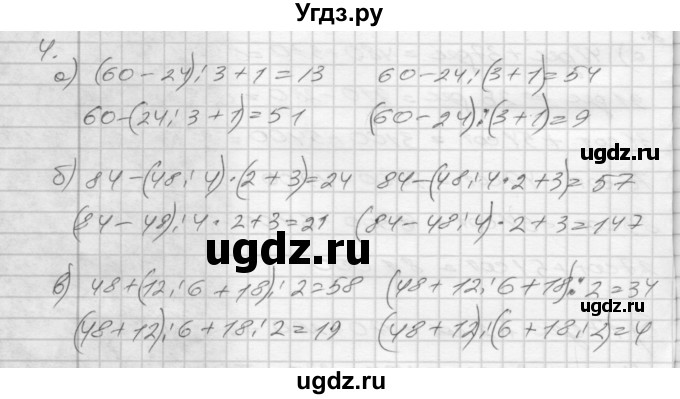 Угдз.ру
4.
а) (60-24):3+1=13 60-24:(3+1)=54
60-(24:3+1)=51 (60-24):(3+1)=9
ugdz.ru
б) 84-(48:4)·(2+3)=24 84-(48:4·2+3)=57
(84-48):4·2+3=21 (84-48:4)·2+3=147
ugdz.ru
ugdz.ru
в) 48+(12:6+18):2=58 (48+12:6+18):2=34
(48+12):6+18:2=19 (48+12):(6+18:2)=4
ugdz.ru
ugdz.ru